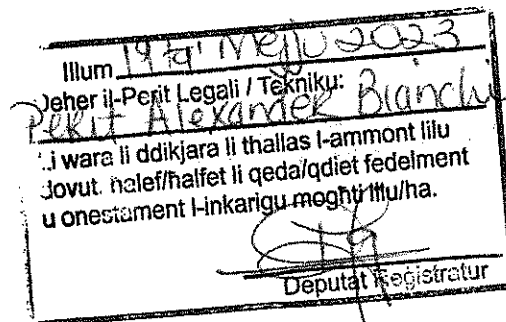 Illum 19 ta' Mejju 2023
Deher il-Perit Legali / Tekniku:
Perit Alexander Bianchi
..i wara li ddikjara li tħallas l-ammont lilu
dovut. ħalef/ħalfet li qeda/qdiet fedelment
u onestament l-inkarigu mogħti lilu/ha.
Deputat Reġistratur